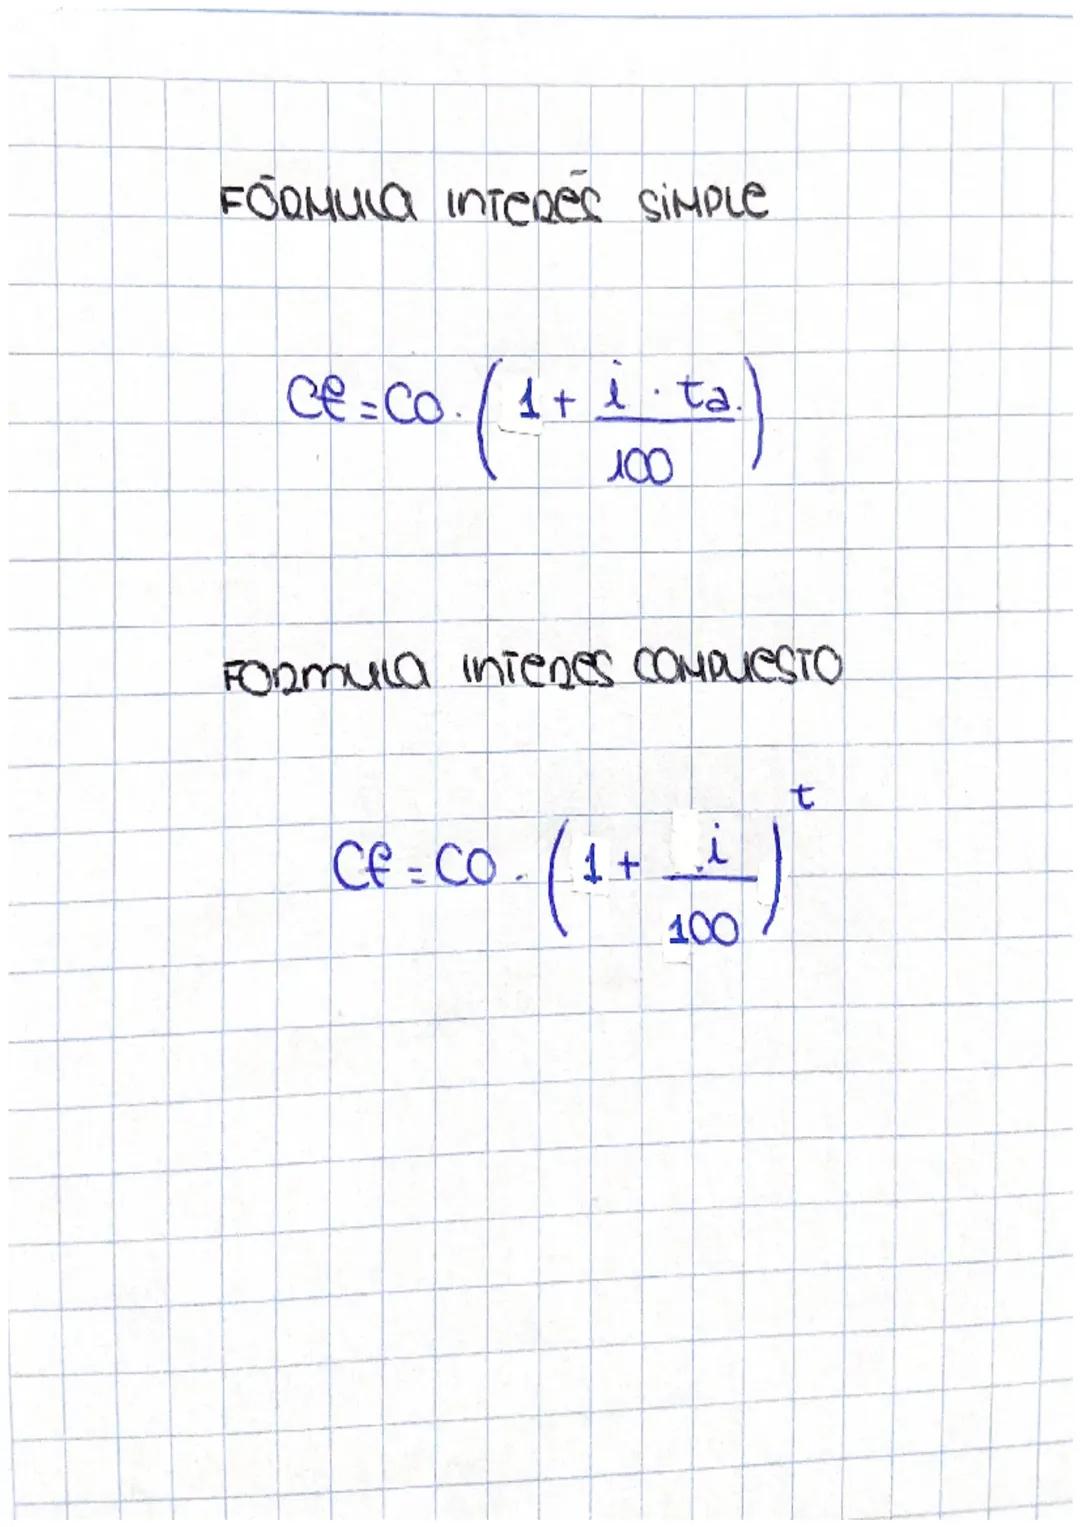 FÓRMULA INTERÉS SIMPLE
Cf = C0 · ( 1 + i · ta. / 100 )
FORMULA INTERES COMPUESTO
Cf = C0 · ( 1 + i / 100 )^t